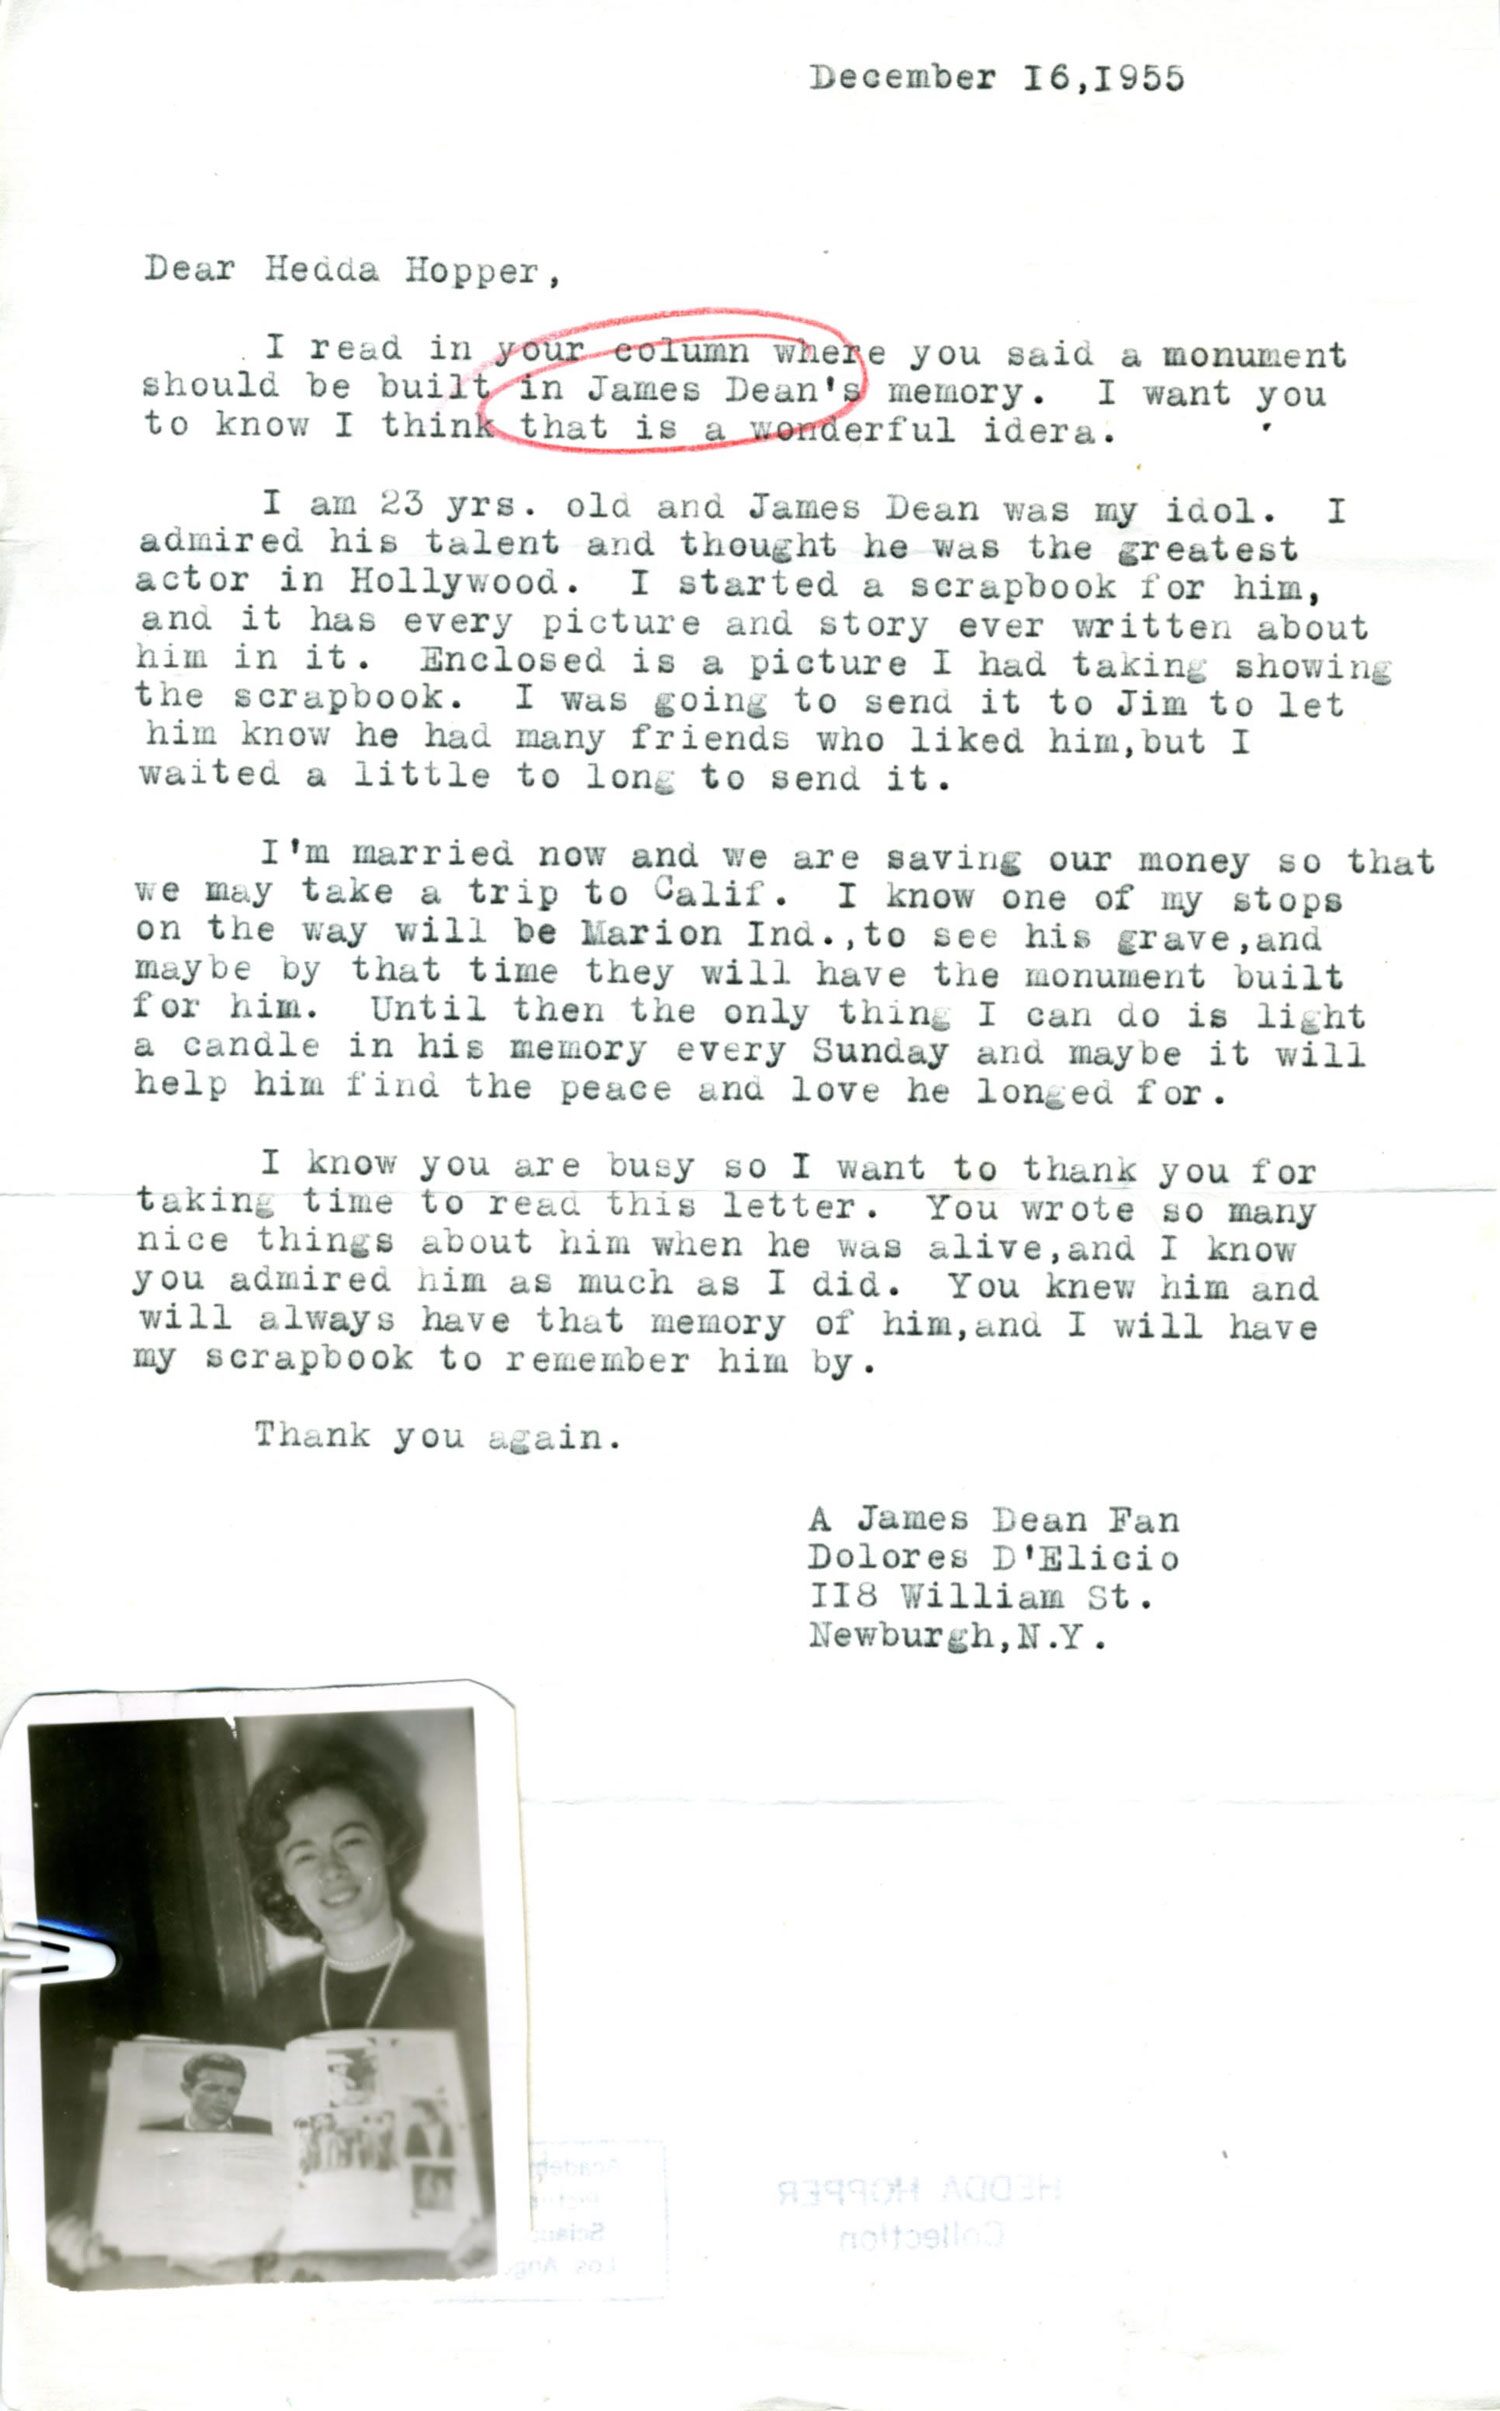 December I6,I955
Dear Hedda Hopper,
I read in your column where you said a monument
should be built in James Dean's memory. I want you
to know I think that is a wonderful idera.
I am 23 yrs. old and James Dean was my idol. I
admired his talent and thought he was the greatest
actor in Hollywood. I started a scrapbook for him,
and it has every picture and story ever written about
him in it. Enclosed is a picture I had taking showing
the scrapbook. I was going to send it to Jim to let
him know he had many friends who liked him,but I
waited a little to long to send it.
I'm married now and we are saving our money so that
we may take a trip to Calif. I know one of my stops
on the way will be Marion Ind.,to see his grave,and
maybe by that time they will have the monument built
for him. Until then the only thing I can do is light
a candle in his memory every Sunday and maybe it will
help him find the peace and love he longed for.
I know you are busy so I want to thank you for
taking time to read this letter. You wrote so many
nice things about him when he was alive,and I know
you admired him as much as I did. You knew him and
will always have that memory of him,and I will have
my scrapbook to remember him by.
Thank you again.
A James Dean Fan
Dolores D'Elicio
II8 William St.
Newburgh,N.Y.
HEDDA HOPPER
Collection